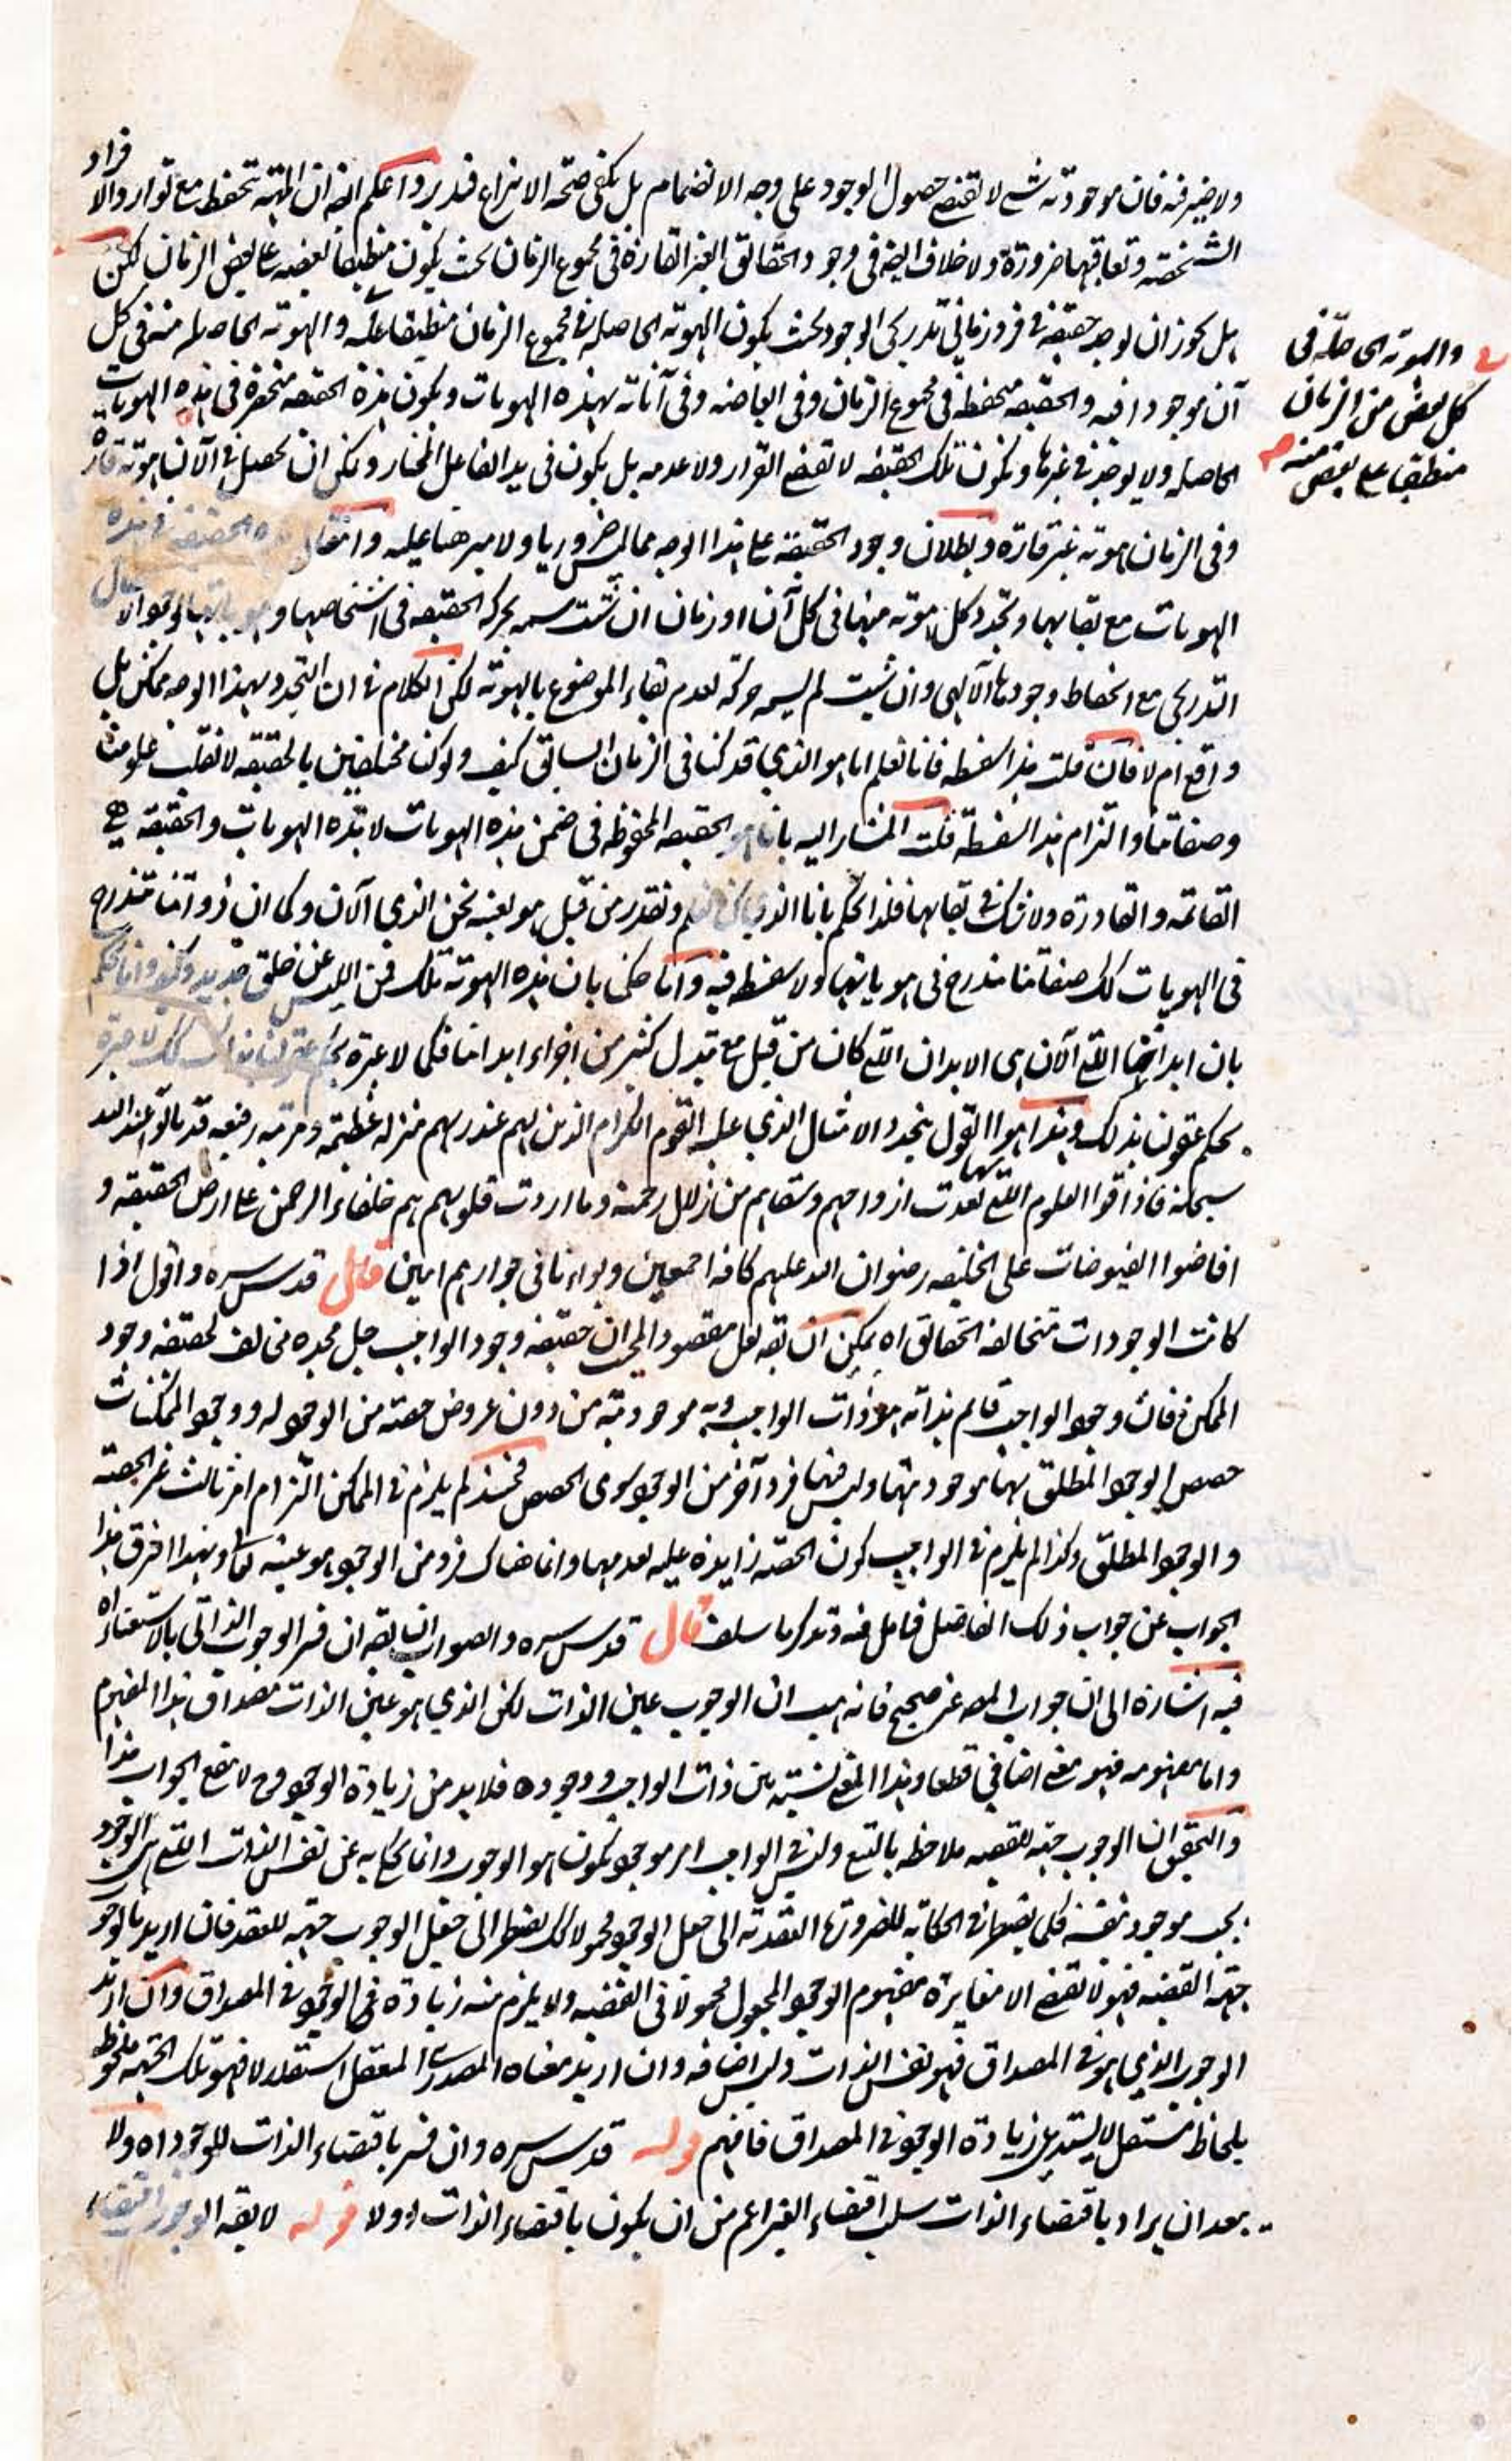 ولا ضير فيه فان موجودية شيء لا تقتضي حصول الوجود على وجه الانضمام بل يكفي صحة الانتزاع فتدبر واعلم انه ان المهية تحفظ مع توارد الافراد
الشخصية وتعاقبها ضرورة ولا خلاف ايضا في وجود الحقائق الغير القارة في مجموع الزمان بحيث يكون منطبقا بعضه على بعض الزمان لكن
بل يجوز ان يوجد حقيقة في فرد زماني تدريجي الوجود بحيث يكون الهوية الحاصلة في مجموع الزمان منطبقا عليه والهوية الحاصلة منه في كل
والهوية الحاصلة في
كل بعض من الزمان
منطبقا على بعض منه
آن موجودا فيه والحقيقة منحفظة في مجموع الزمان وفي ابعاضه وفي آناته بهذه الهويات ويكون هذه الحقيقة منحصرة في هذه الهويات
الحاصلة ولا يوجد في غيرها ويكون تلك الحقيقة لا تقتضي القرار ولا عدمه بل يكون في يد الفاعل المختار ولكن ان تحصل في الآن هوية قارة
وفي الزمان هوية غير قارة وبطلان وجود الحقيقة على هذا الوجه مما ليس ضروريا ولا مبرهنا عليه وانتقال هذه الحقيقة في هذه
الهويات مع بقائها وتجدد كل هوية منها في كل آن او زمان ان شئت سمه بحركة الحقيقة في اشخاصها و
التدريجي مع انحفاظ وجودها الالهي وان شئت لم يسمه حركة لعدم بقاء الموضوع بالهوية لكن الكلام في ان التجدد بهذا الوجه ممكن بل
واقع ام لا فان قلت هذا سفسطة فانا نعلم انا هو الذي قد كنا في الزمان السابق كيف ولو كنا مختلفين بالحقيقة لانقلب علومنا
وصفاتنا والتزام هذا السفسطة قلت المشار اليه بانا هو الحقيقة المحفوظة في ضمن هذه الهويات لا هذه الهويات والحقيقة هي
القائمة والقادرة ولا شك في بقائها فلذا الحكم بانا الذي كنا نعلم ونقدر من قبل هو بعينه نحن الذي الآن وكما ان ذواتنا متدرج
في الهويات كك صفاتنا متدرج في هوياتها ولا سفسطة فيه واما حكمي بان هذه الهوية تلك فمن اللبس عن خلق جديد وكيف وانا نحكم
بان ابداننا التي الآن هي الابدان التي كان من قبل مع تبدل كثير من اجزاء ابداننا فكما لا عبرة بحكم عقولنا بذلك كك لا عبرة
بحكم عقولنا بذلك وهذا هو القول بتجدد الامثال الذي عليه القوم الكرام الذين لهم عند ربهم منزلة عظيمة ومرتبة رفيعة قد نالوا عند الله
سبحانه فاذاقوا العلوم التي تغذت بها ارواحهم وسقاهم من زلال رحمته وما اردت قلوبهم هم خلفاء الرحمن على ارض الحقيقة و
افاضوا الفيوضات على الخليقة رضوان الله عليهم كافة اجمعين وبوأنا في جوارهم امين قال قدس سره واقول اذا
كانت الوجودات متخالفة الحقائق اه يمكن ان يقه لعل مقصود المجيب ان حقيقة وجود الواجب جل مجده مخالف لحقيقة وجود
الممكن فان وجود الواجب قائم بذاته هو ذات الواجب وبه موجوديته من دون عروض حصة من الوجود له ووجود الممكنات
حصص الوجود المطلق بها موجوديتها وليس فيها فرد آخر من الوجود سوى الحصص فحينئذ لم يلزم في الممكن التزام امر ثالث غير الحصة
والوجود المطلق وكذا لم يلزم في الواجب كون الحصة زايدة عليه لعدمها وانما هناك فرد من الوجود هو عينه تعالى وبهذا افترق هذا
الجواب عن جواب ذلك الفاضل فتامل فيه وتذكر ما سلف قال قدس سره والصواب ان يقه ان فسر الوجوب الذاتي بالاستغناء اه
فيه اشارة الى ان جواب المص غير صحيح فانه هب ان الوجوب عين الذات لكن الذي هو عين الذات مصداق هذا المفهوم
واما مفهومه فهو معنى اضافي قطعا وهذا المعنى نسبته بين ذات الواجب ووجوده فلا بد من زيادة الوجود وح لا ينفع الجواب هذا
والتحقيق ان الوجوب جهة للقضية ملاحظة بالتبع وليس في الواجب امر موجود يكون هو الوجوب وانما يحكى به عن نفس الذات التي هي الوجود
يجب موجود بنفسه فكما يضطر في الحكاية للضرورة العقدية الى جعل الوجود محمولا كك يضطر الى جعل الوجوب جهة للعقد فان اريد بالوجوب
جهة القضية فهو لا يقتضي الا مغايرة مفهوم الوجود المجعول محمولا في القضية ولا يلزم منه زيادة في الوجود في المصداق وان اريد
الوجوب الذي هو في المصداق فهو نفس الذات وليس اضافة وان اريد معناه المصدري المعقل استقلالا فهو تلك الجهة ملحوظة
بلحاظ مستقل لا يستدعي زيادة الوجود في المصداق فافهم قوله قدس سره وان فسر باقتضاء الذات للوجود اه ولا
يبعد ان يراد باقتضاء الذات سلب اقتضاء الغير اعم من ان يكون باقتضاء الذات اولا قوله لا يقه الوجود اقتضاء